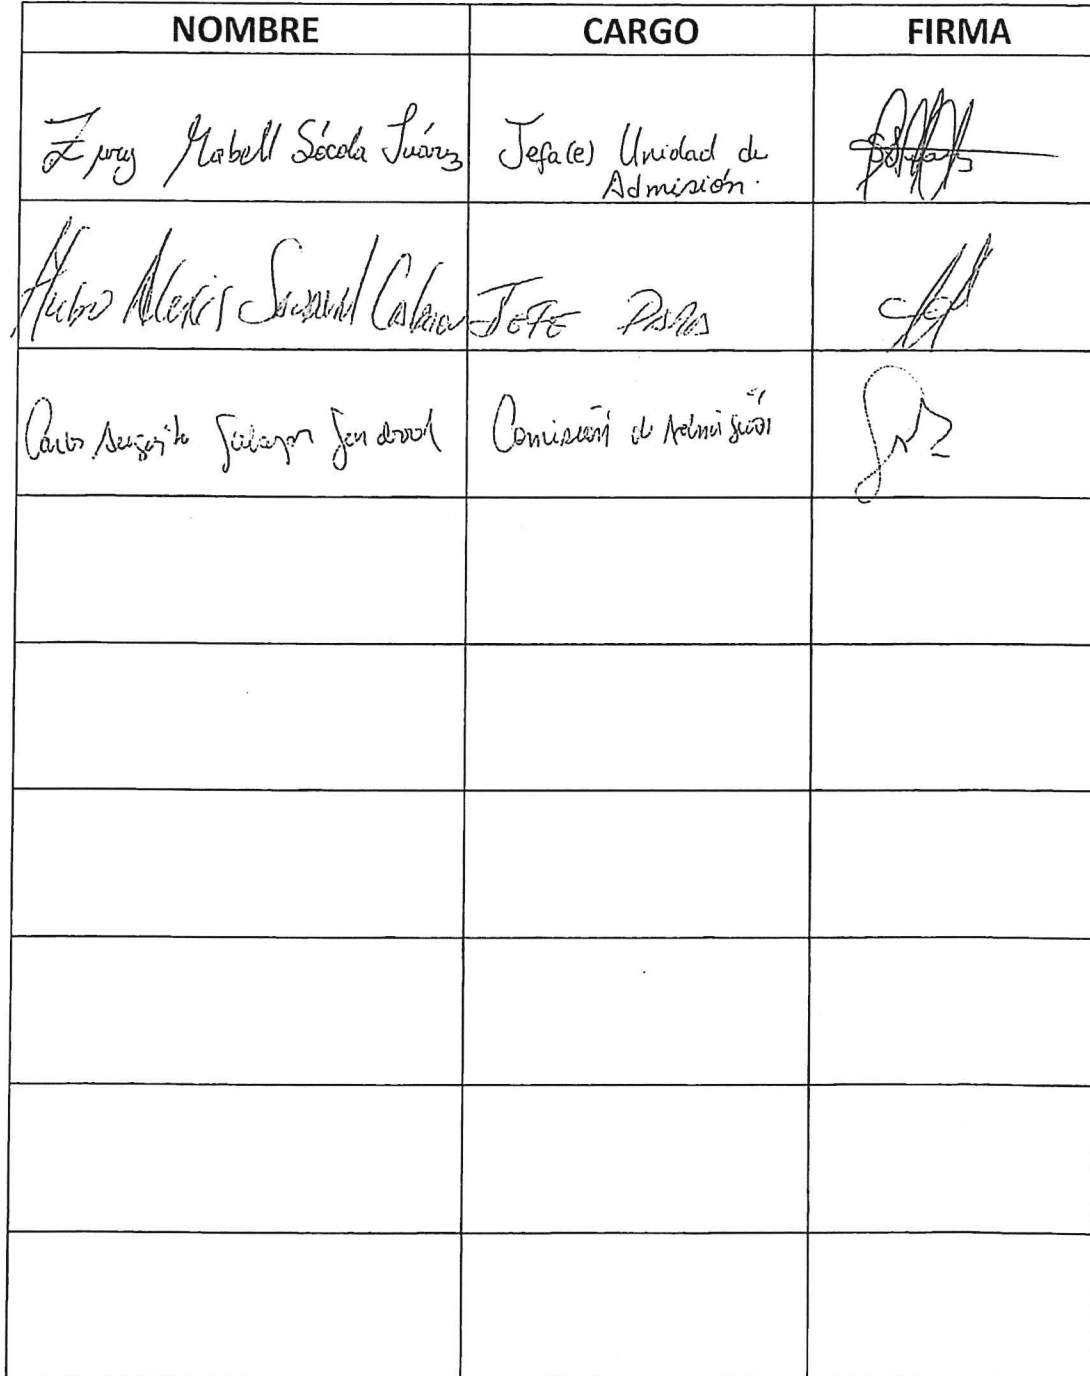 NOMBRE CARGO FIRMA
Mabell Sócola Juárez Jefa(e) Unidad de
Admisión.
Alexis JEFE
Carlos Augusto Salazar Sandoval Comisión de Admisión